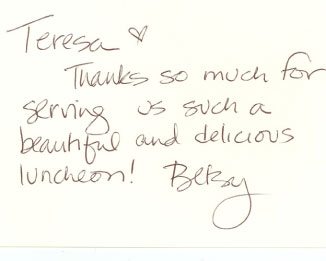 Teresa ♡
Thanks so much for
serving us such a
beautiful and delicious
luncheon! Betsy